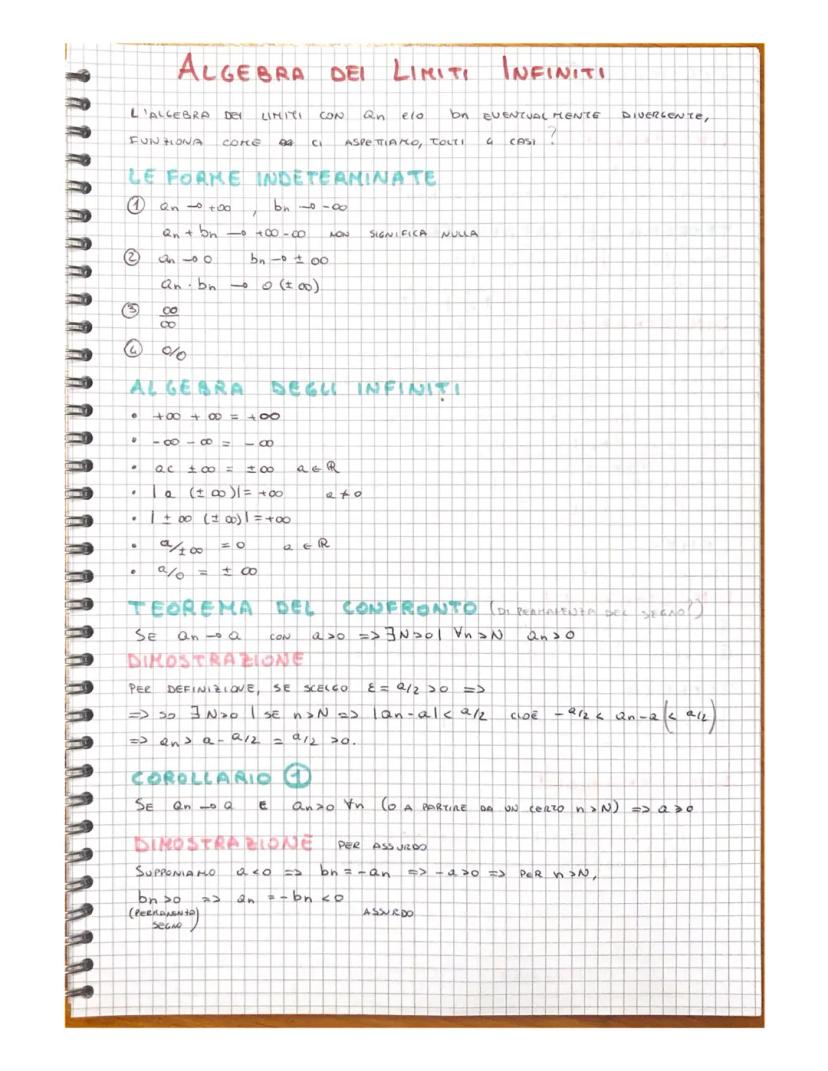 ALGEBRA DEI LIMITI INFINITI
L'ALGEBRA DEI LIMITI CON an e/o bn EVENTUALMENTE DIVERGENTE,
FUNZIONA COME CI ASPETTIAMO, TOLTI 4 CASI ?
LE FORME INDETERMINATE
① an → +∞ , bn → -∞
an + bn → +∞ -∞ NON SIGNIFICA NULLA
② an → 0 bn → ± ∞
an · bn → 0 (± ∞)
③ ∞/∞
④ 0/0
ALGEBRA DEGLI INFINITI
• +∞ + ∞ = +∞
• -∞ - ∞ = -∞
• ac ±∞ = ±∞ a ∈ R
• | a (± ∞)| = +∞ a ≠ 0
• | ± ∞ (± ∞)| = +∞
• a/±∞ = 0 a ∈ R
• a/0 = ± ∞
TEOREMA DEL CONFRONTO (DI PERMANENZA DEL SEGNO?)
SE an → a CON a>0 => ∃N>0 | ∀n>N an>0
DIMOSTRAZIONE
PER DEFINIZIONE, SE SCELGO ε = a/2 >0 =>
=> so ∃ N>0 | SE n>N => |an-a| < a/2 CIOÈ -a/2 < an-a (< a/2)
=> an > a - a/2 = a/2 >0.
COROLLARIO ①
SE an → a E an>0 ∀n (O A PARTIRE DA UN CERTO n>N) => a≥0
DIMOSTRAZIONE PER ASSURDO
SUPPONIAMO a<0 => bn = -an => -a>0 => PER n>N,
bn >0 => an = -bn <0
(PERMANENZA SEGNO) ASSURDO